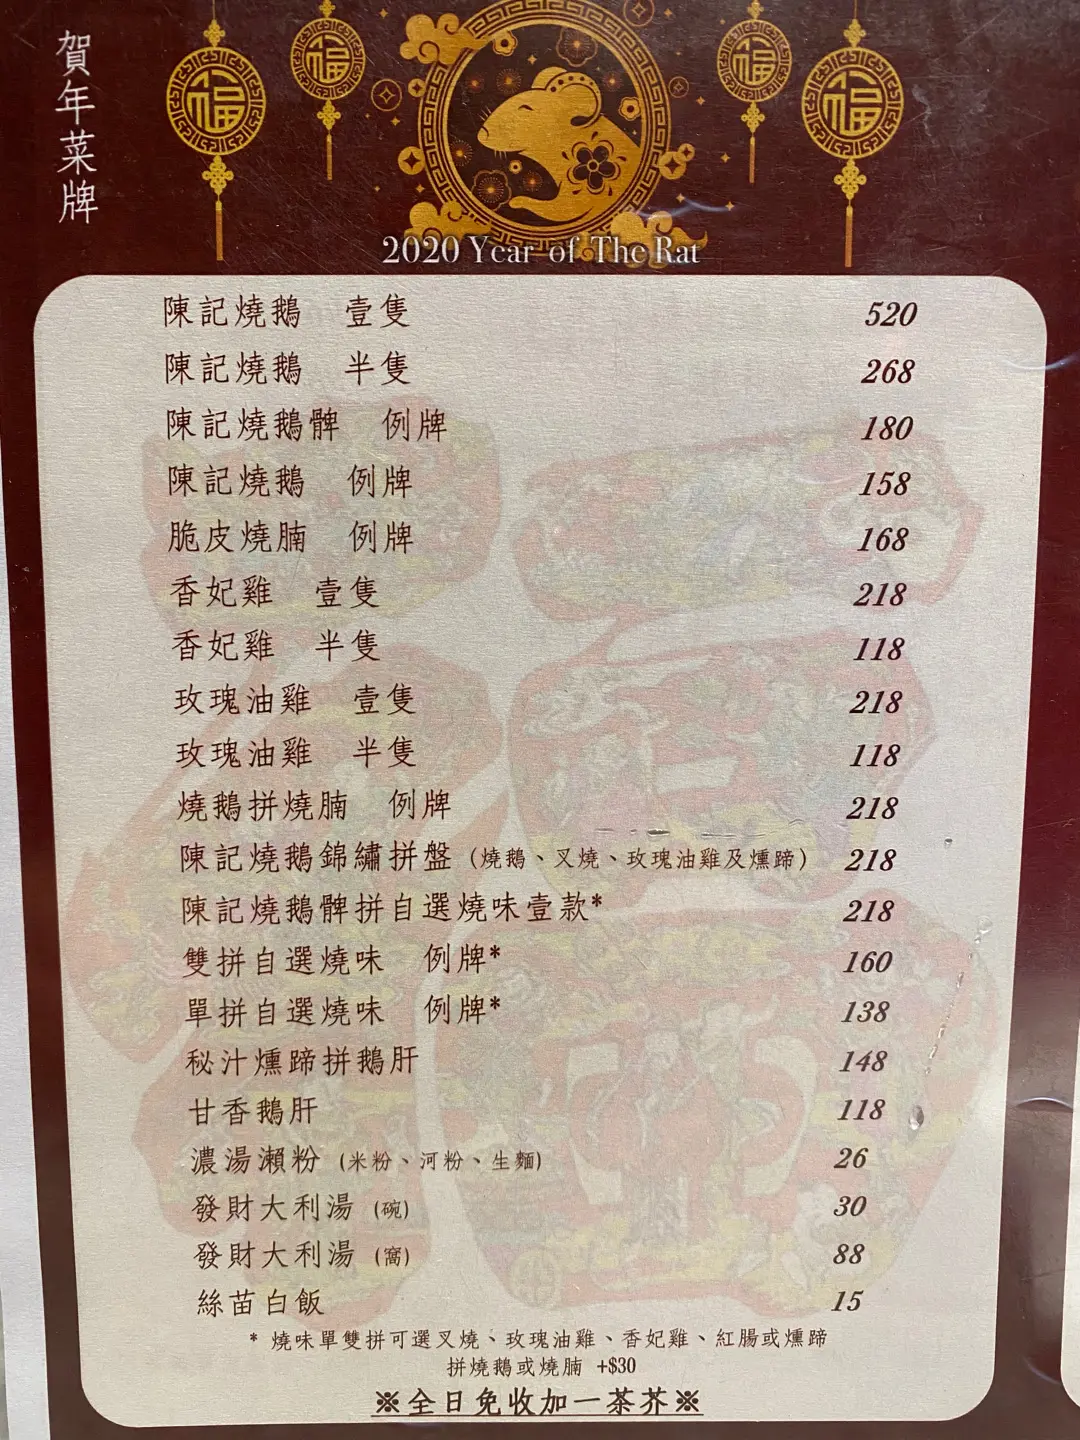 賀年菜牌
福 福 福 福
2020 Year of The Rat
陳記燒鵝 壹隻 520
陳記燒鵝 半隻 268
陳記燒鵝髀 例牌 180
陳記燒鵝 例牌 158
脆皮燒腩 例牌 168
香妃雞 壹隻 218
香妃雞 半隻 118
玫瑰油雞 壹隻 218
玫瑰油雞 半隻 118
燒鵝拼燒腩 例牌 218
陳記燒鵝錦繡拼盤 (燒鵝、叉燒、玫瑰油雞及燻蹄) 218
陳記燒鵝髀拼自選燒味壹款* 218
雙拼自選燒味 例牌* 160
單拼自選燒味 例牌* 138
秘汁燻蹄拼鵝肝 148
甘香鵝肝 118
濃湯瀨粉 (米粉、河粉、生麵) 26
發財大利湯 (碗) 30
發財大利湯 (窩) 88
絲苗白飯 15
* 燒味單雙拼可選叉燒、玫瑰油雞、香妃雞、紅腸或燻蹄
拼燒鵝或燒腩 +$30
※全日免收加一茶芥※